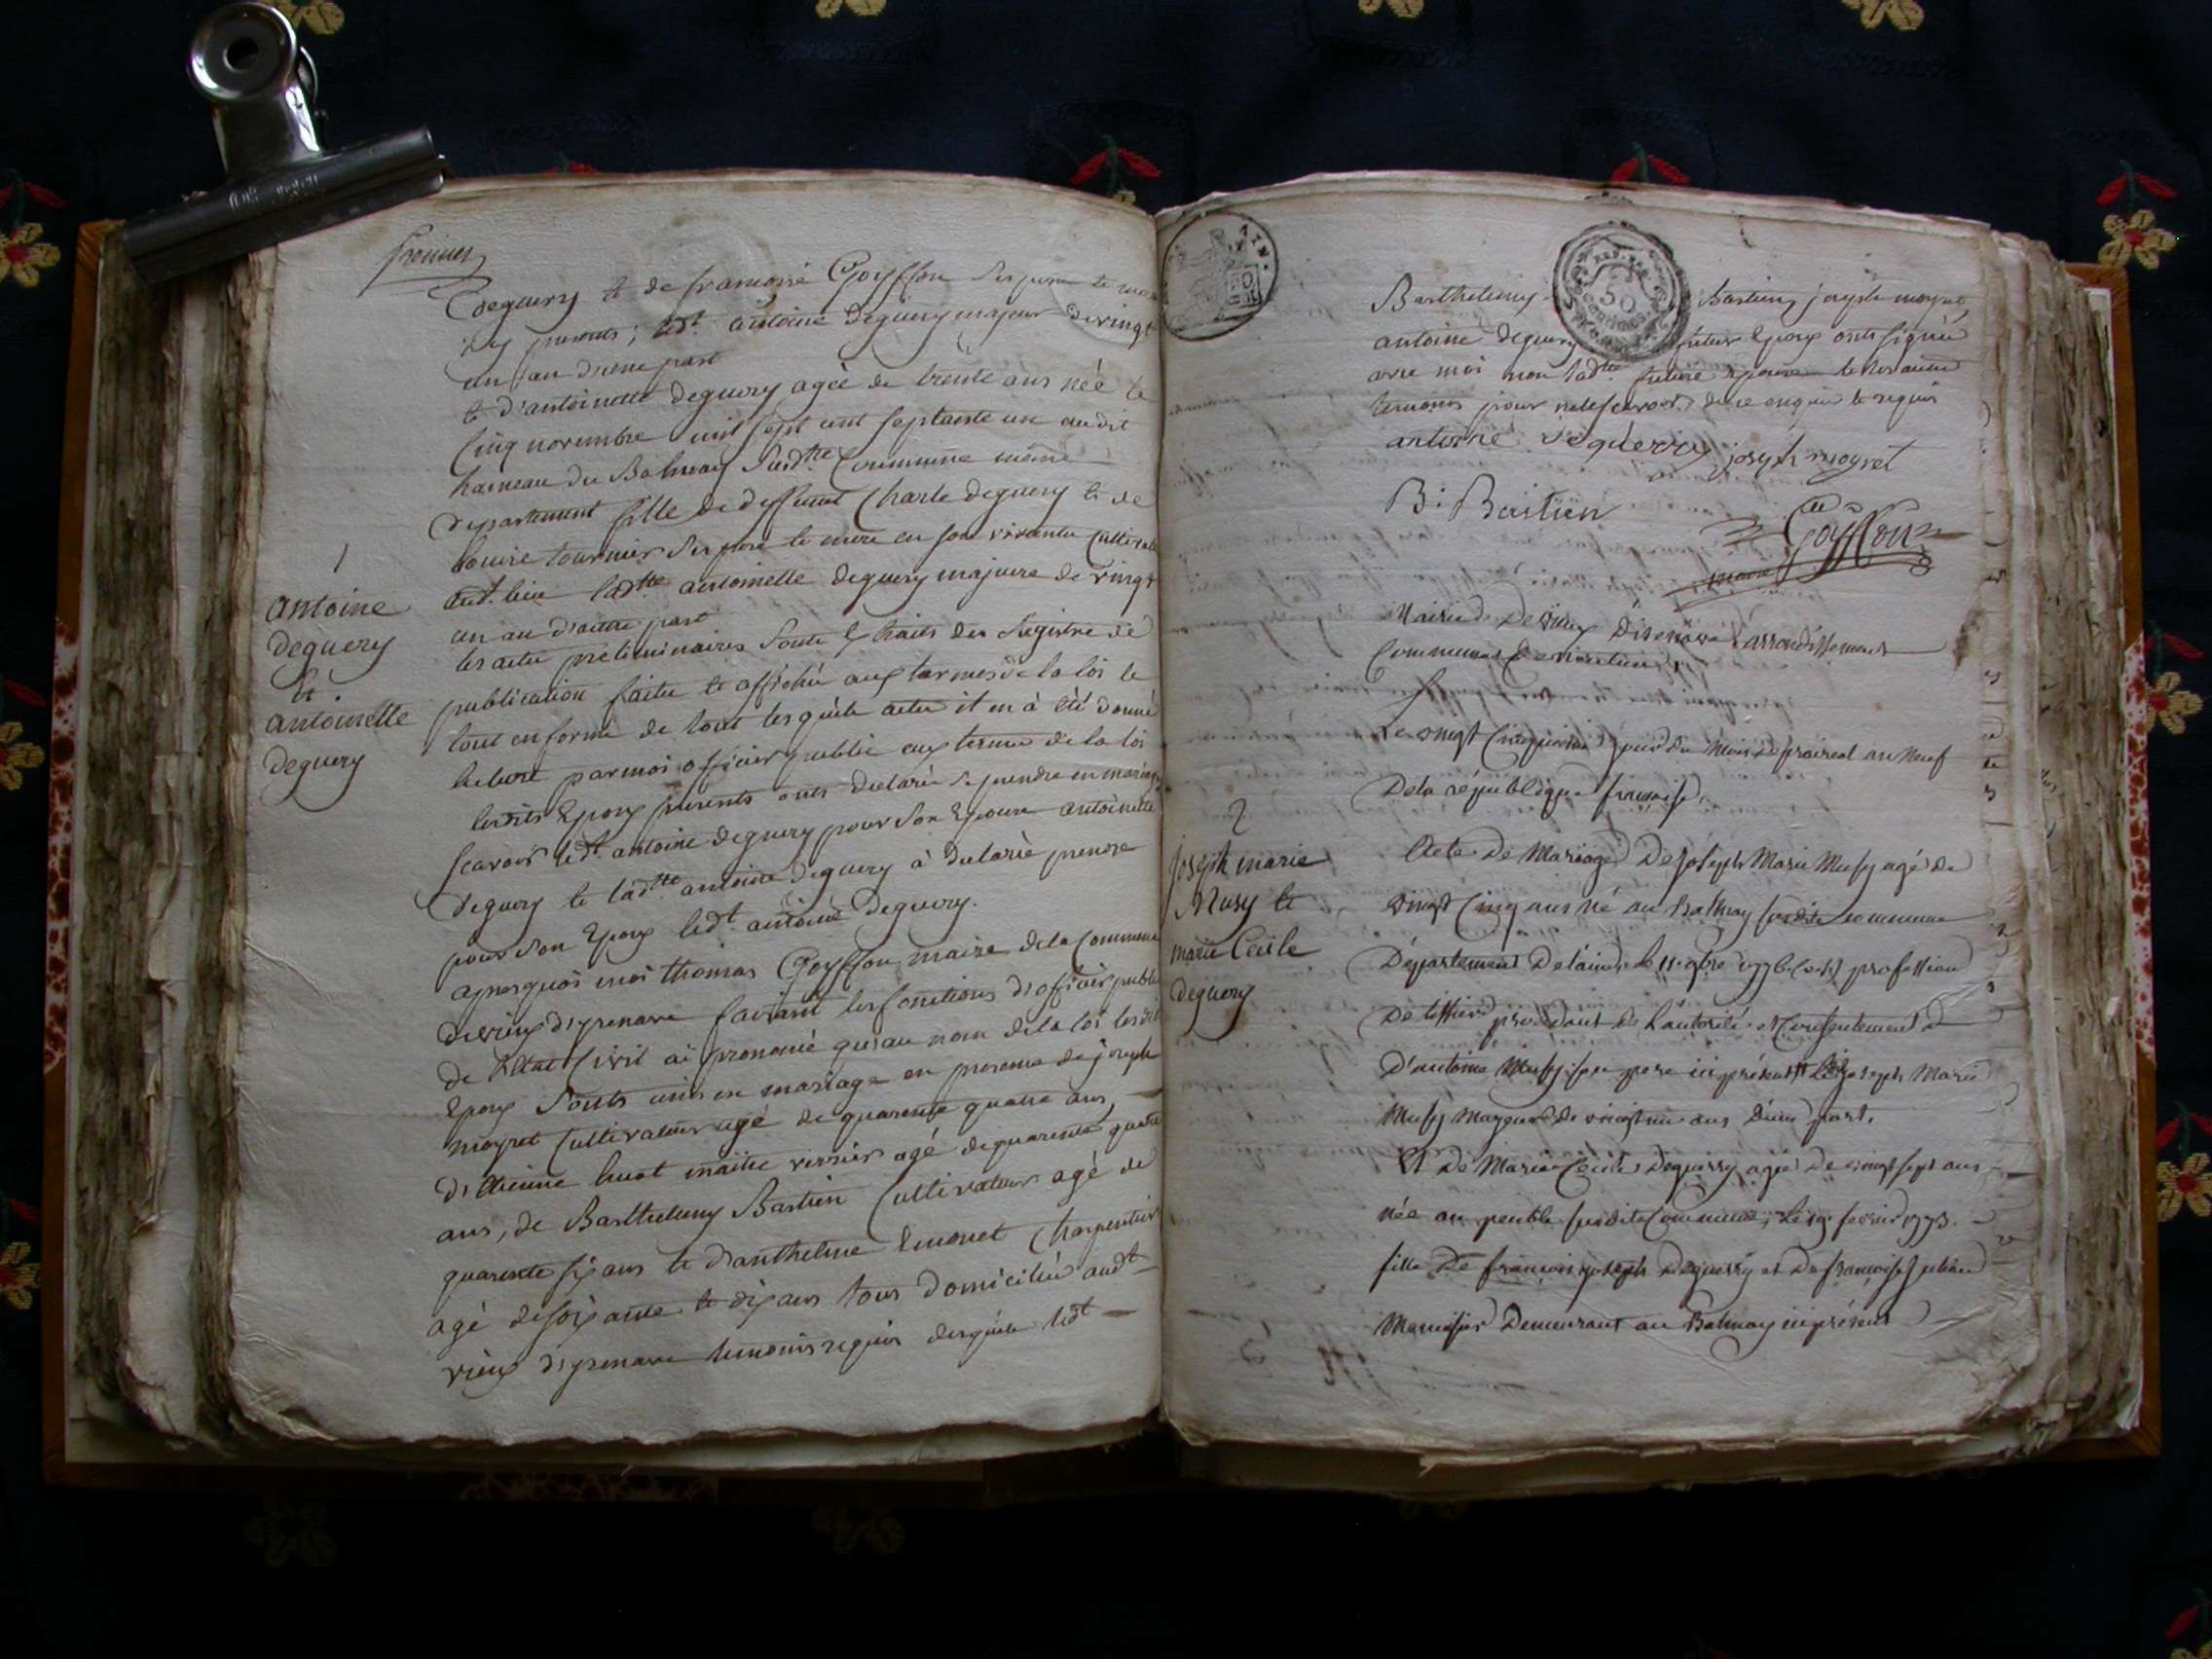 premier
deguery et de francoise Goyffon ses pere et mere
icy presents; ledt. antoine deguery majeur de vingt
un an d'une part
et d'antoinette deguery agée de trente ans née le
cinq novembre mil sept cent septante un audit
hameau du Balmay susdtte Commune même
departement fille de deffunt Charle deguery et de
louise tournier ses pere et mere en son vivante Cultivat
audt. lieu ladtte antoinette deguery majeure de vingt
un an d'autre part
les actes préliminaires sonts Extraits des Registre de
publication faite et affichée aux termes de la loi le
tout en forme de tout lesquels actes il en à été donné
lecture par moi officier public aux termes de la loi
lesdits Epoux presents onts declaré se prendre en mariage
scavoir ledt antoine deguery pour son Epouse antoinette
deguery et ladtte antoine deguery à declarée prendre
pour son Epoux ledt antoine deguery.
apres quoi moi thomas Goyffon maire de la Commune
de vieux d'yzenave faisant les fonctions d'officier public
de l'Etat Civil ai prononcé qu'au nom de la loi lesdit
Epoux sonts unis en mariage en presence de joseph
moyret Cultivateur agé de quarente quatre ans,
d'Etienne huot maitre verrier agé de quarente quatre
ans, de Barthelemy Bastien Cultivateur agé de
quarente six ans et d'anthelme Emonet Charpentier
agé de soixante et dix ans tous domiciliée audt
vieux d'yzenave temoins requis desquels ledt
1
antoine
deguery
et
antoinette
deguery
AIN.
REP. FRA.
50
CENTIMES
Barthelemy Bastien, joseph moyret,
antoine deguery futur Epoux onts signée
avec moi non ladtte future Epouse le restant
temoins pour ne le scavoir de ce enquis et requis
antoine deguerry joseph moyret
B: Bastien
Goyffon
maire
Mairie de Devieux Disenave arrondissement
Communal de nantua
Le vingt Cinquieme jour du Mois de praireal an Neuf
De la république française,
2
joseph marie
Musy et
marie Cecile
deguery
Acte De Mariage De joseph Marie Musy agé de
vingt Cinq ans né au Balmay susdite commune
Département De lain, le 11. 9bre 1776 profession
De tissier procédant de l'autorité et Consentement
D'antoine Musy son pere ici présent joseph Marie
Musy Mageur de vingt un ans d'une part.
Et De Marie Cécile Deguerry agée De vingt sept ans
née au penble susdite Commune, le 19 fevrier 1773.
fille De francois joseph Deguerry et De francoise
Demeurant au Balmay ici présent